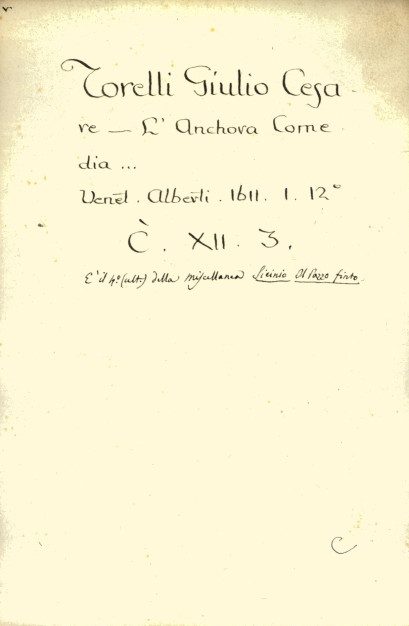 Torelli Giulio Cesa-
re — L' Anchora Come-
dia ...
Venet. Alberti. 1611. 1. 12°
C. XII. 3.
E' il 4° (ult.) della miscellanea Licinio Il Pazzo finto.
C